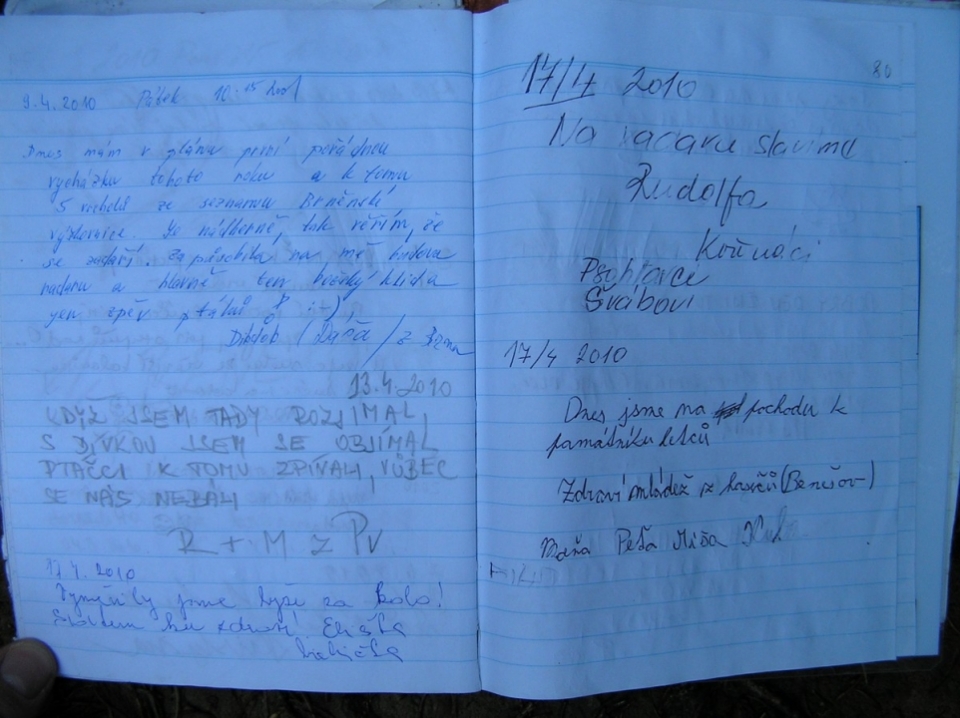 9.4.2010 Pátek 10.15 hod
Dnes mám v plánu první pořádnou
vycházku tohoto roku a k tomu
5 vrcholů ze seznamu Brněnské
vyzývací. Je nádherně, tak věřím, že
se zadaří. Zapůsobila na mě budova
nadanu a hlavně ten božský klid a
jen zpěv ptáků :)
(Dáša) z Brna
13.4.2010
KDYŽ JSEM TADY ROZJÍMAL,
S DÍVKOU JSEM SE OBJÍMAL
PTÁČCI K TOMU ZPÍVALI, VŮBEC
SE NÁS NEBÁLI
R + M z PV
17.4.2010
Vyměnily jsme lyže za kolo!
Sportem ku zdraví! Eliška
babička
80
17/4 2010
Na slavíme
Rudolfa
Psohlavce
Švábovi
17/4 2010
Dnes jsme na pochodu k
památníku letců
Zdraví mládež z hasičů (Benešov)
Péťa Míša